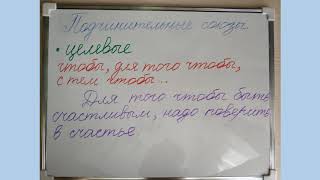 Подчинительные союзы
• целевые
чтобы, для того чтобы,
с тем чтобы...
Для того чтобы быть
счастливым, надо поверить
в счастье